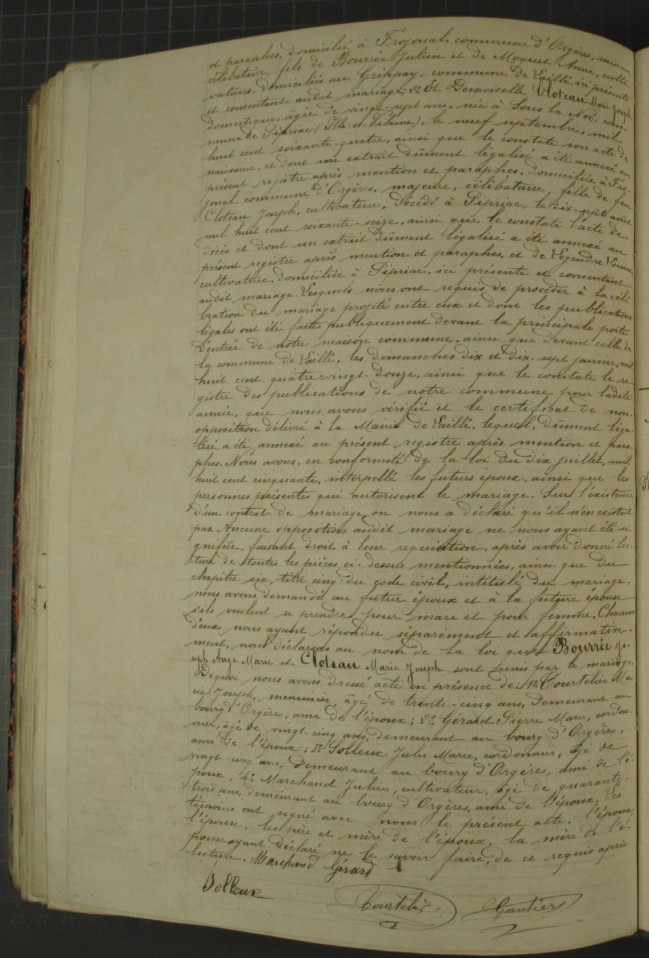 et paraphes, domicilié à Frojouah commune d'Orgères, majeur
célibataire fils de Bourrée Julien et de Moquet Anne, culti-
vateurs, domiciliés au Grippay, commune de Laillé ici présents
et consentant audit mariage, 2° Et Demoiselle Cloteau Marie Joseph
domestique, âgée de vingt-sept ans, née à Sous la Noë, com-
mune de Pipriac (Ille et Vilaine), le neuf septembre, mil
huit cent soixante-quatre, ainsi que le constate son acte de
naissance, et dont un extrait dûment légalisé a été annexé au
présent registre après mention et paraphes, domiciliée à Fro-
jouah commune d'Orgères, majeure, célibataire fille de feu
Cloteau Joseph, cultivateur, décédé à Pipriac, le dix-sept
mil huit cent soixante-seize, ainsi que le constate l'acte de
décès et dont un extrait dûment légalisé a été annexé au
présent registre après mention et paraphes, et de Legendre
cultivatrice, domiciliée à Pipriac, ici présente et consentant
audit mariage. Lesquels nous ont requis de procéder à la célé-
bration du mariage projeté entre eux et dont les publications
légales ont été faites publiquement devant la principale porte
d'entrée de notre maison commune, ainsi que devant celle de
la commune de Laillé, les dimanches dix et dix-sept janvier, mil
huit cent quatre-vingt-douze, ainsi que le constate le re-
gistre des publications de notre commune pour ladite
année, que nous avons vérifié et le certificat de non
opposition délivré à la Mairie de Laillé, lequel dûment léga-
lisé a été annexé au présent registre après mention et para-
phes. Nous avons, en conformité de la loi du dix juillet, mil
huit cent cinquante, interpellé les futurs époux, ainsi que les
personnes présentes qui autorisent le mariage. Sur l'existence
d'un contrat de mariage, on nous a déclaré qu'il n'en existait
pas. Aucune opposition audit mariage ne nous ayant été si-
gnifiée, faisant droit à leur réquisition, après avoir donné lec-
ture de toutes les pièces ci-dessus mentionnées, ainsi que du
chapitre six, titre cinq du code civil, intitulé du mariage,
nous avons demandé au futur époux et à la future épouse
s'ils veulent se prendre pour mari et pour femme. Chacun
d'eux nous ayant répondu séparément et affirmative-
ment, nous déclarons au nom de la loi que Bourrée Jo-
seph Ange Marie et Cloteau Marie Joseph sont unis par le mariage.
De quoi nous avons dressé acte en présence de 1° Courtelin Ma-
rie Joseph, menuisier, âgé de trente-cinq ans, demeurant au
bourg d'Orgères, ami de l'époux; 2° Gérard Pierre Marie, cordon-
nier, âgé de vingt cinq ans, demeurant au bourg d'Orgères,
ami de l'époux; 3° Solleux Jules Marie, cordonnier, âgé de
vingt cinq ans, demeurant au bourg d'Orgères, ami de l'é-
poux; 4° Marchand Julien, cultivateur, âgé de quarante-
trois ans, demeurant au bourg d'Orgères, ami de l'époux, les
témoins ont signé avec nous le présent acte, l'époux,
l'épouse, les père et mère de l'époux, la mère de l'é-
pouse ayant déclaré ne le savoir faire, de ce requis après
lecture. Marchand Gérard
Solleux
Courtelin Gautier